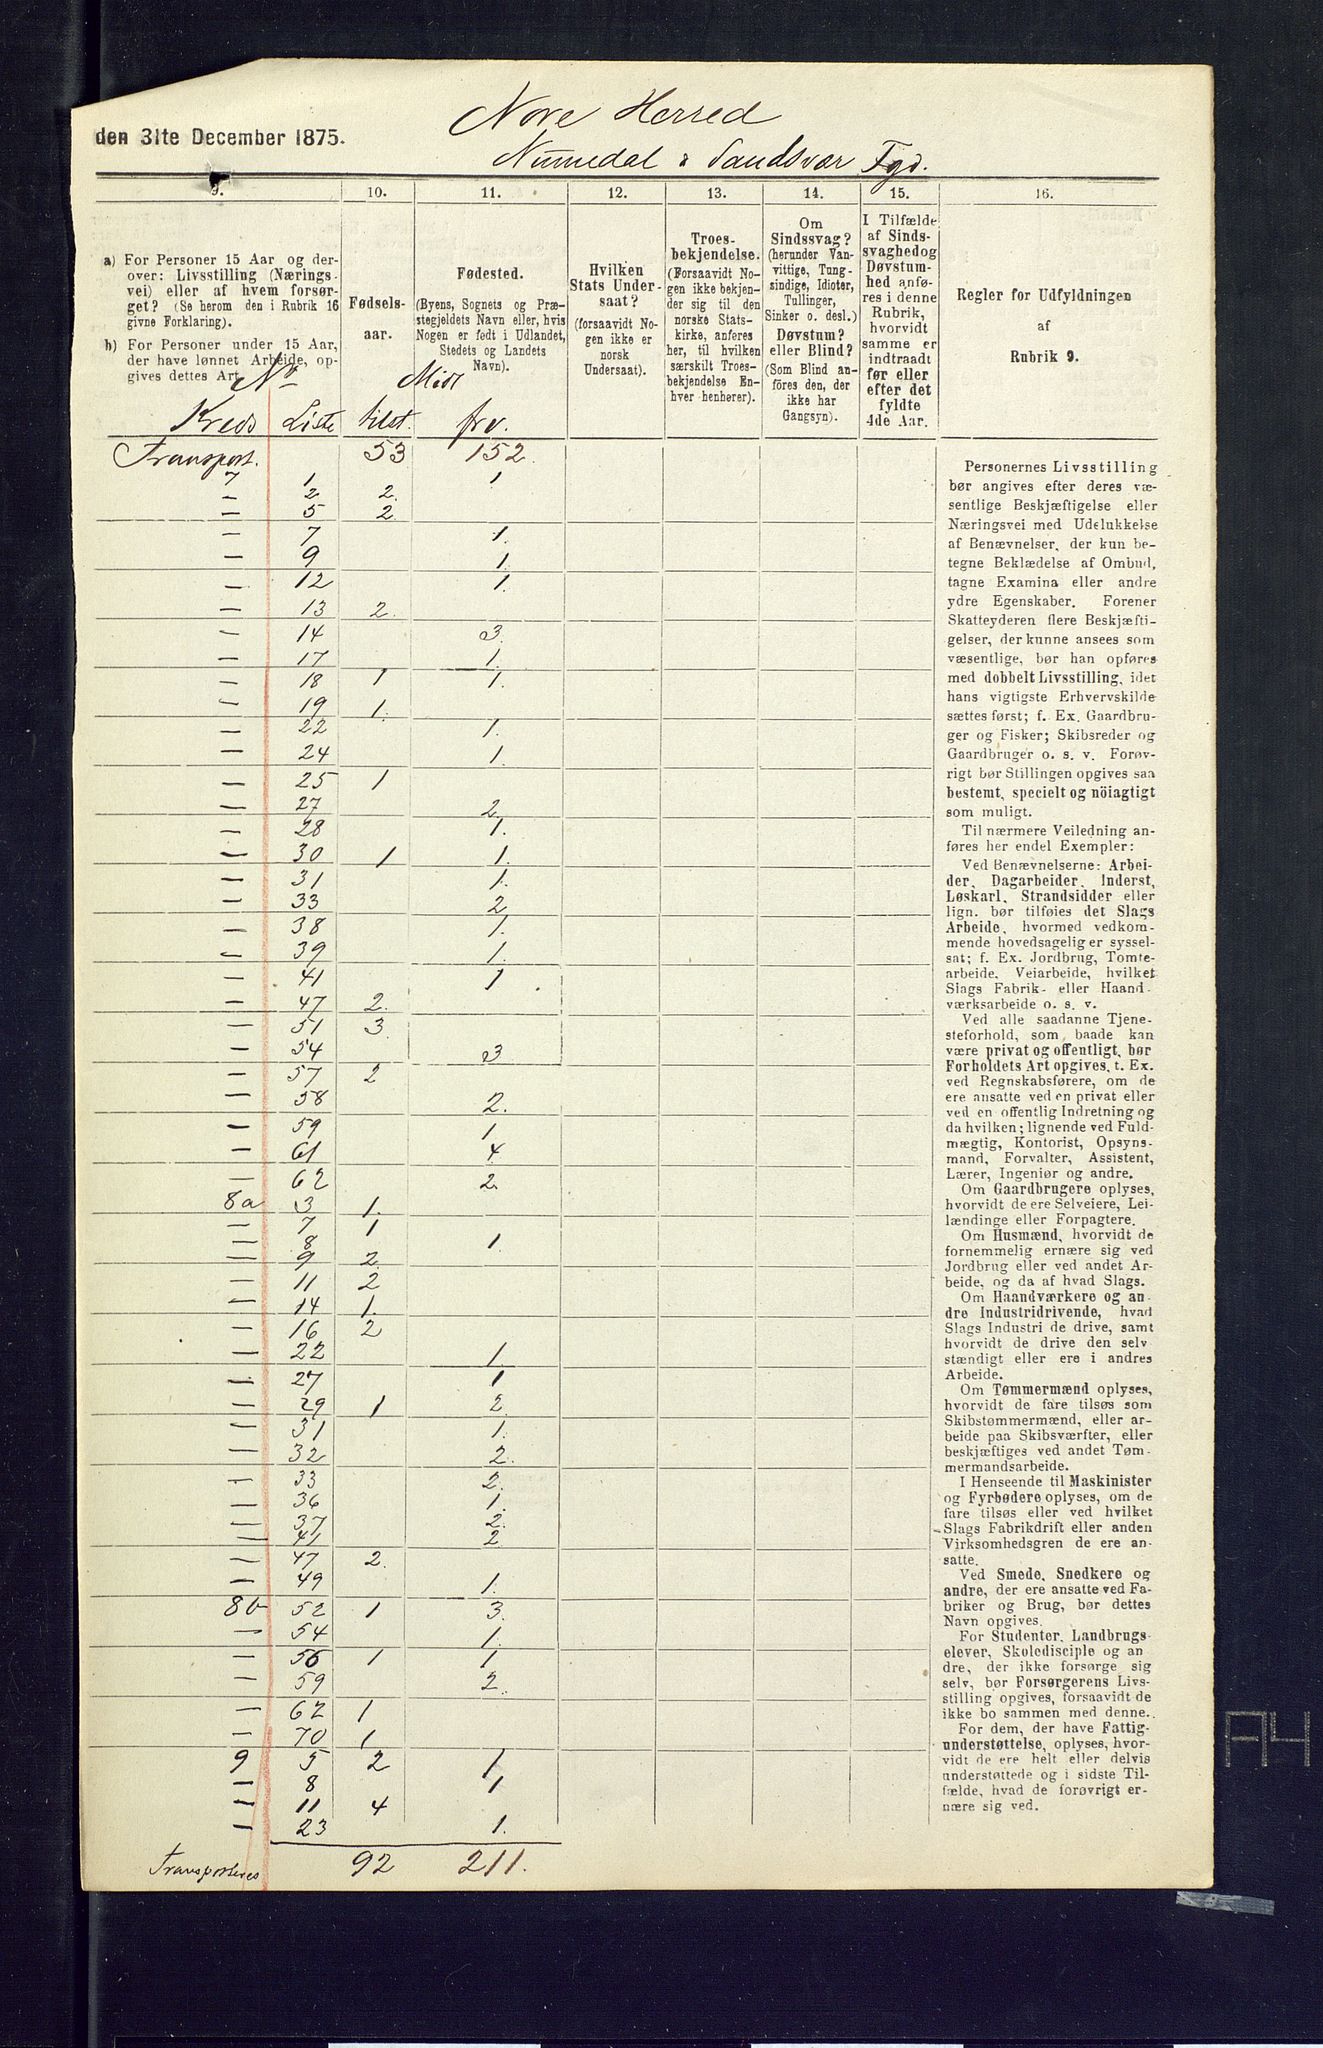 Nore Herred
den 31te December 1875.
Numedal & Sandsvær Fgd.
9.
a) For Personer 15 Aar og der-
over: Livsstilling (Nærings-
vei) eller af hvem forsør-
get? (Se herom den i Rubrik 16
givne Forklaring).
b) For Personer under 15 Aar,
der have lønnet Arbeide, op-
gives dettes Art.
10.
Fødsels-
aar.
11.
Fødested.
(Byens, Sognets og Præ-
stegjeldets Navn eller, hvis
Nogen er født i Udlandet,
Stedets og Landets
Navn).
12.
Hvilken
Stats Under-
saat?
(forsaavidt No-
gen ikke er
norsk
Undersaat).
13.
Troes-
bekjendelse.
(Forsaavidt No-
gen ikke bekjen-
der sig til den
norske Stats-
kirke, anføres
her, til hvilken
særskilt Troes-
bekjendelse En-
hver henhører).
14.
Om
Sindssvag?
(herunder Van-
vittige, Tung-
sindige, Idioter,
Tullinger,
Sinker o. desl.)
Døvstum?
eller Blind?
(Som Blind an-
føres den, der
ikke har
Gangsyn).
15.
I Tilfælde
af Sinds-
svaghed og
Døvstum-
hed anfø-
res i denne
Rubrik,
hvorvidt
samme er
indtraadt
før eller
efter det
fyldte
4de Aar.
16.
Regler for Udfyldningen
af
Rubrik 9.
No Midl
Kreds Liste tilst. frv.
Transport. 53 152
7 1 1
— 2 2.
— 5 2
— 7 1.
— 9 1.
— 12 1.
— 13 2.
— 14 3.
— 17 1.
— 18 1 1.
— 19 1.
— 22 1.
— 24 1.
— 25 1
— 27 2
— 28 1.
— 30 1 1.
— 31 1.
— 33 2
— 38 1.
— 39 1.
— 41 1
— 47 2.
— 51 3
— 54 3
— 57 2
— 58 2.
— 59 1
— 61 4
— 62 2.
8a 3 1.
— 7 1
— 8 1.
— 9 2.
— 11 2
— 14 1.
— 16 2
— 22 1.
— 27 1
— 29 1 2.
— 31 1.
— 32 2.
— 33 2.
— 36 1.
— 37 2.
— 41 2
— 47 2.
— 49 1.
8b 52 1 3.
— 54 1.
— 56 1 1
— 59 2.
— 62 1
— 70 1
9 5 2 1
— 8 1
— 11 4
— 23 1.
Transporteres 92 211.
Personernes Livsstilling
bør angives efter deres væ-
sentlige Beskjæftigelse eller
Næringsvei med Udelukkelse
af Benævnelser, der kun be-
tegne Beklædelse af Ombud,
tagne Examina eller andre
ydre Egenskaber. Forener
Skatteyderen flere Beskjæfti-
gelser, der kunne ansees som
væsentlige, bør han opføres
med dobbelt Livsstilling, idet
hans vigtigste Erhvervskilde
sættes først; f. Ex. Gaardbru-
ger og Fisker; Skibsreder og
Gaardbruger o. s. v. Forøv-
rigt bør Stillingen opgives saa
bestemt, specielt og nöiagtigt
som muligt.
Til nærmere Veiledning an-
føres her endel Exempler:
Ved Benævnelserne: Arbei-
der, Dagarbeider, Inderst,
Løskarl, Strandsidder eller
lign. bør tilføies det Slags
Arbeide, hvormed vedkom-
mende hovedsagelig er syssel-
sat; f. Ex. Jordbrug, Tomte-
arbeide, Veiarbeide, hvilket
Slags Fabrik- eller Haand-
værksarbeide o. s. v.
Ved alle saadanne Tjene-
steforhold, som baade kan
være privat og offentligt, bør
Forholdets Art opgives, t. Ex.
ved Regnskabsførere, om de
ere ansatte ved en privat eller
ved en offentlig Indretning og
da hvilken; lignende ved Fuld-
mægtig, Kontorist, Opsyns-
mand, Forvalter, Assistent,
Lærer, Ingeniør og andre.
Om Gaardbrugere oplyses,
hvorvidt de ere Selveiere, Lei-
lændinge eller Forpagtere.
Om Husmænd, hvorvidt de
fornemmelig ernære sig ved
Jordbrug eller ved andet Ar-
beide, og da af hvad Slags.
Om Haandværkere og an-
dre Industridrivende, hvad
Slags Industri de drive, samt
hvorvidt de drive den selv-
stændigt eller ere i andres
Arbeide.
Om Tømmermænd oplyses,
hvorvidt de fare tilsøs som
Skibstømmermænd, eller ar-
beide paa Skibsværfter, eller
beskjæftiges ved andet Tøm-
mermandsarbeide.
I Henseende til Maskinister
og Fyrbødere oplyses, om de
fare tilsøs eller ved hvilket
Slags Fabrikdrift eller anden
Virksomhedsgren de ere an-
satte.
Ved Smede, Snedkere og
andre, der ere ansatte ved Fa-
briker og Brug, bør dettes
Navn opgives.
For Studenter, Landbrugs-
elever, Skoledisciple og an-
dre, der ikke forsørge sig
selv, bør Forsørgerens Livs-
stilling opgives, forsaavidt de
ikke bo sammen med denne.
For dem, der have Fattig-
understøttelse, oplyses, hvor-
vidt de ere helt eller delvis
understøttede og i sidste Til-
fælde, hvad de forøvrigt er-
nære sig ved.
A4